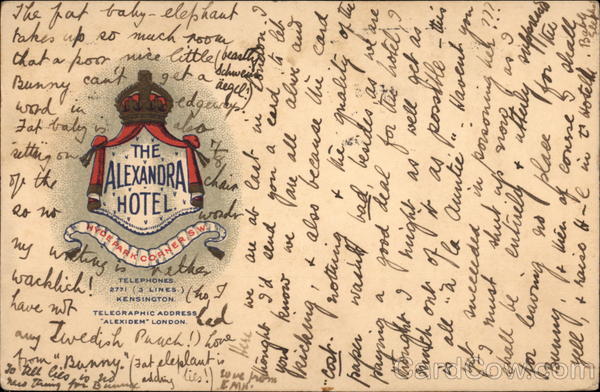 The fat baby-elephant
takes up so much room
that a poor nice little (beastly
Bunny can't get a Schweinigel!)
word in edgeways.
Fat baby is also
sitting on 7/8
of the chair
so no wonder
my writing is rather
wacklich! (No, I
have not had
any Swedish Punch!) love
from "Bunny." (Fat elephant is
To tell lies in 3rd adding lies!)
new thing for Bunny
love from
E.M.H.
THE
ALEXANDRA
HOTEL
HYDE PARK CORNER S.W.
TELEPHONES
2771 (3 LINES)
KENSINGTON.
TELEGRAPHIC ADDRESS
"ALEXIDEM" LONDON.
Here we are at last in London. I
thought I'd send you a card to let
you know we are all alive and
kicking, & also because the card
cost nothing & the quality of the
paper wasn't bad, besides as we are
putting a good deal for the hotel, I
thought I might as well get as
much out of it as possible – this
is all "à la Auntie." Haven't you
yet succeeded in poisoning her???
I must shut up now as I
shall be entirely & utterly suppressed
for leaving no place for the
Bunny & then of course I shall
yell & raise H-l in ye hotel. Baby
Eleph.
CardCow.com